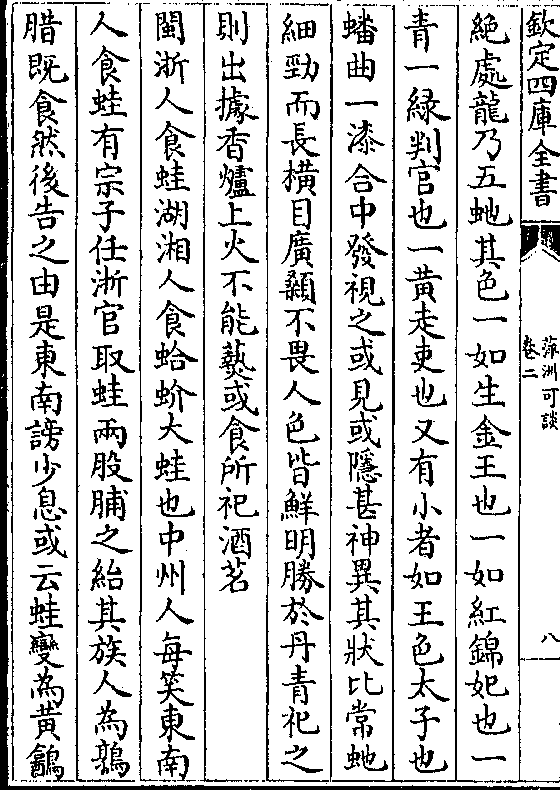 欽定四庫全書
萍洲可談
卷二
八
絶處龍乃五虵其色一如生金王也一如紅錦妃也一
青一緑判官也一黄走吏也又有小者如玉色太子也
蟠曲一漆合中發視之或見或隱甚神異其狀比常虵
細勁而長橫目廣顙不畏人色皆鮮明勝於丹青祀之
則出據香爐上火不能爇或食所祀酒茗
閩浙人食蛙湖湘人食蛤蚧大蛙也中州人每笑東南
人食蛙有宗子任浙官取蛙兩股脯之紿其族人為鶉
腊既食然後告之由是東南謗少息或云蛙變為黄鶕